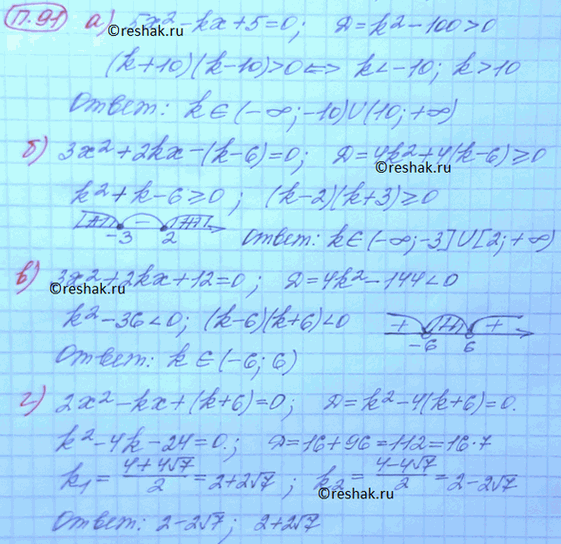 П.91 а) 5x² - kx + 5 = 0; Д = k² - 100 > 0
©reshak.ru
(k+10)(k-10) > 0 <=> k < -10; k > 10
Ответ: k ∈ (-∞; -10) ∪ (10; +∞)
б) 3x² + 2kx - (k-6) = 0; Д = 4k² + 4(k-6) ≥ 0
©reshak.ru
k² + k - 6 ≥ 0; (k-2)(k+3) ≥ 0
+ - +
-3 2 Ответ: k ∈ (-∞; -3] ∪ [2; +∞)
в) 3x² + 2kx + 12 = 0; Д = 4k² - 144 < 0
©reshak.ru
k² - 36 < 0; (k-6)(k+6) < 0
+ +
-6 6
Ответ: k ∈ (-6; 6)
г) 2x² - kx + (k+6) = 0; Д = k² - 4(k+6) = 0.
k² - 4k - 24 = 0; Д = 16 + 96 = 112 = 16·7
k₁ = (4+4√7)/2 = 2+2√7; k₂ = (4-4√7)/2 = 2-2√7
©reshak.ru
Ответ: 2-2√7; 2+2√7